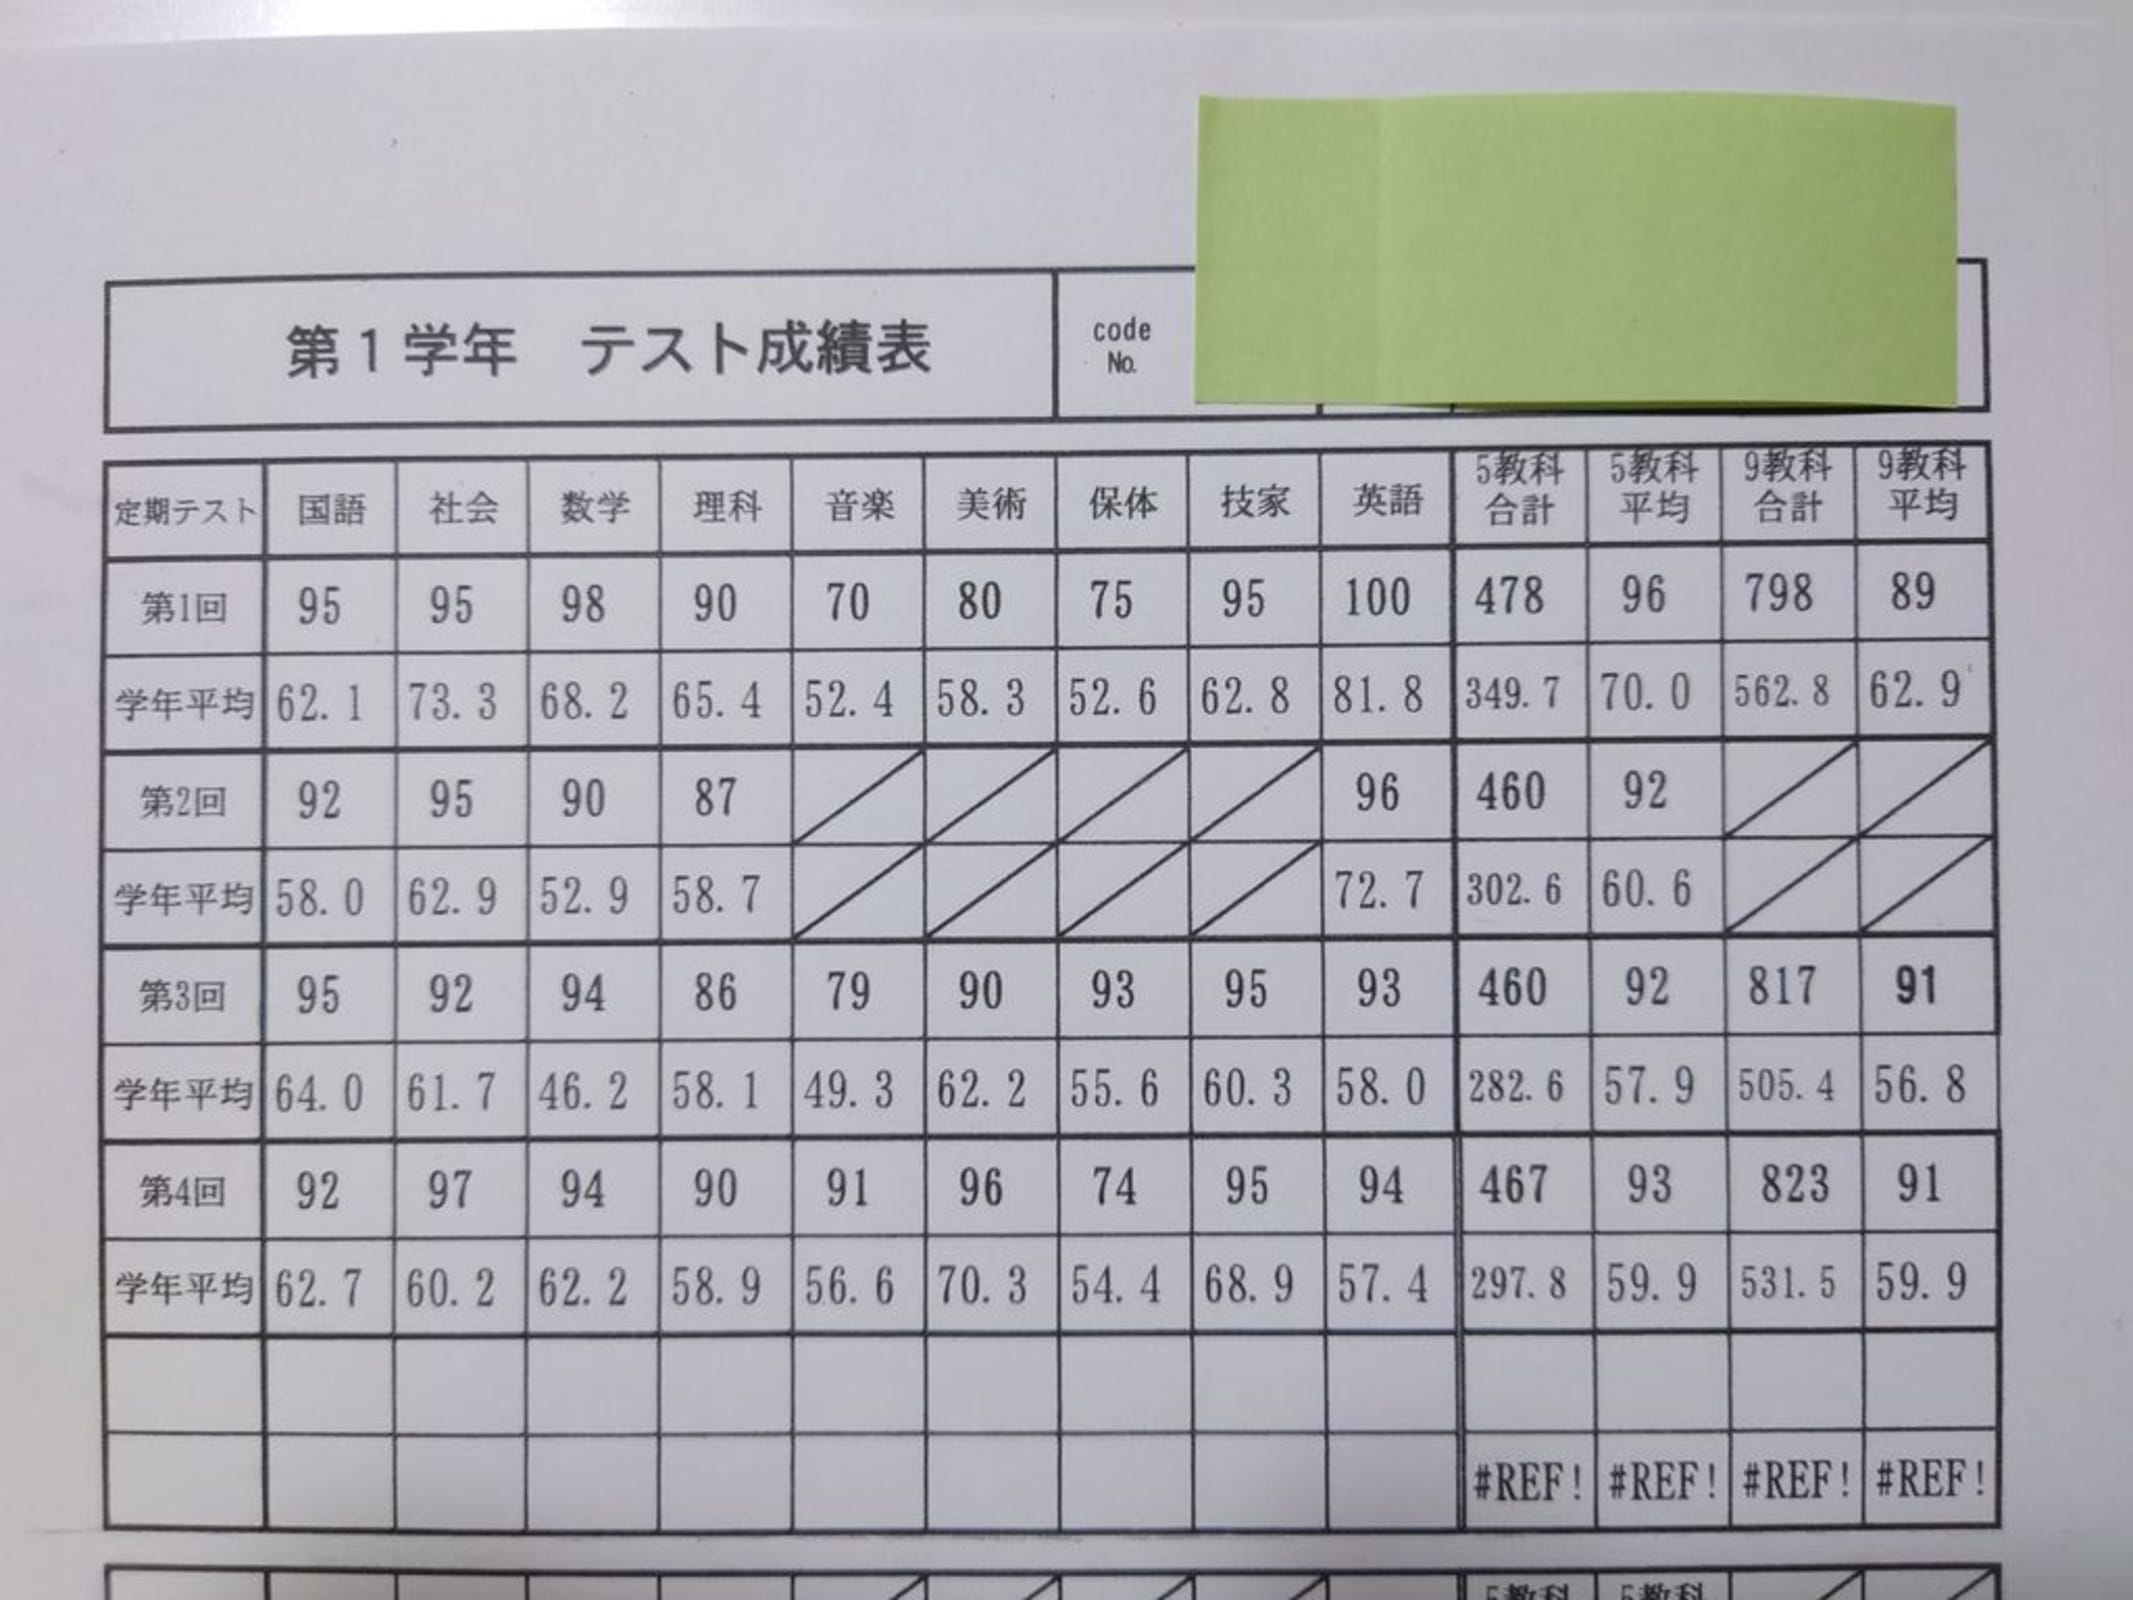 第1学年　テスト成績表　code No.
定期テスト 国語 社会 数学 理科 音楽 美術 保体 技家 英語 5教科合計 5教科平均 9教科合計 9教科平均
第1回 95 95 98 90 70 80 75 95 100 478 96 798 89
学年平均 62.1 73.3 68.2 65.4 52.4 58.3 52.6 62.8 81.8 349.7 70.0 562.8 62.9
第2回 92 95 90 87 96 460 92
学年平均 58.0 62.9 52.9 58.7 72.7 302.6 60.6
第3回 95 92 94 86 79 90 93 95 93 460 92 817 91
学年平均 64.0 61.7 46.2 58.1 49.3 62.2 55.6 60.3 58.0 282.6 57.9 505.4 56.8
第4回 92 97 94 90 91 96 74 95 94 467 93 823 91
学年平均 62.7 60.2 62.2 58.9 56.6 70.3 54.4 68.9 57.4 297.8 59.9 531.5 59.9
#REF! #REF! #REF! #REF!
5教科 5教科